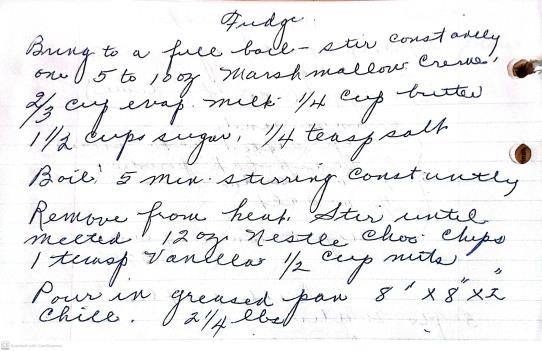 Fudge.
Bring to a full boil - stir constantly
one 5 to 10 oz. Marshmallow Creme,
2/3 cup evap. milk 1/4 cup butter
1 1/2 cups sugar, 1/4 teasp salt
Boil 5 min. stirring constantly
Remove from heat. Stir until
melted 12 oz Nestle Choc Chips
1 teasp Vanilla 1/2 cup nuts
Pour in greased pan 8" x 8" x 2"
Chill. 2 1/4 lbs
Scanned with CamScanner